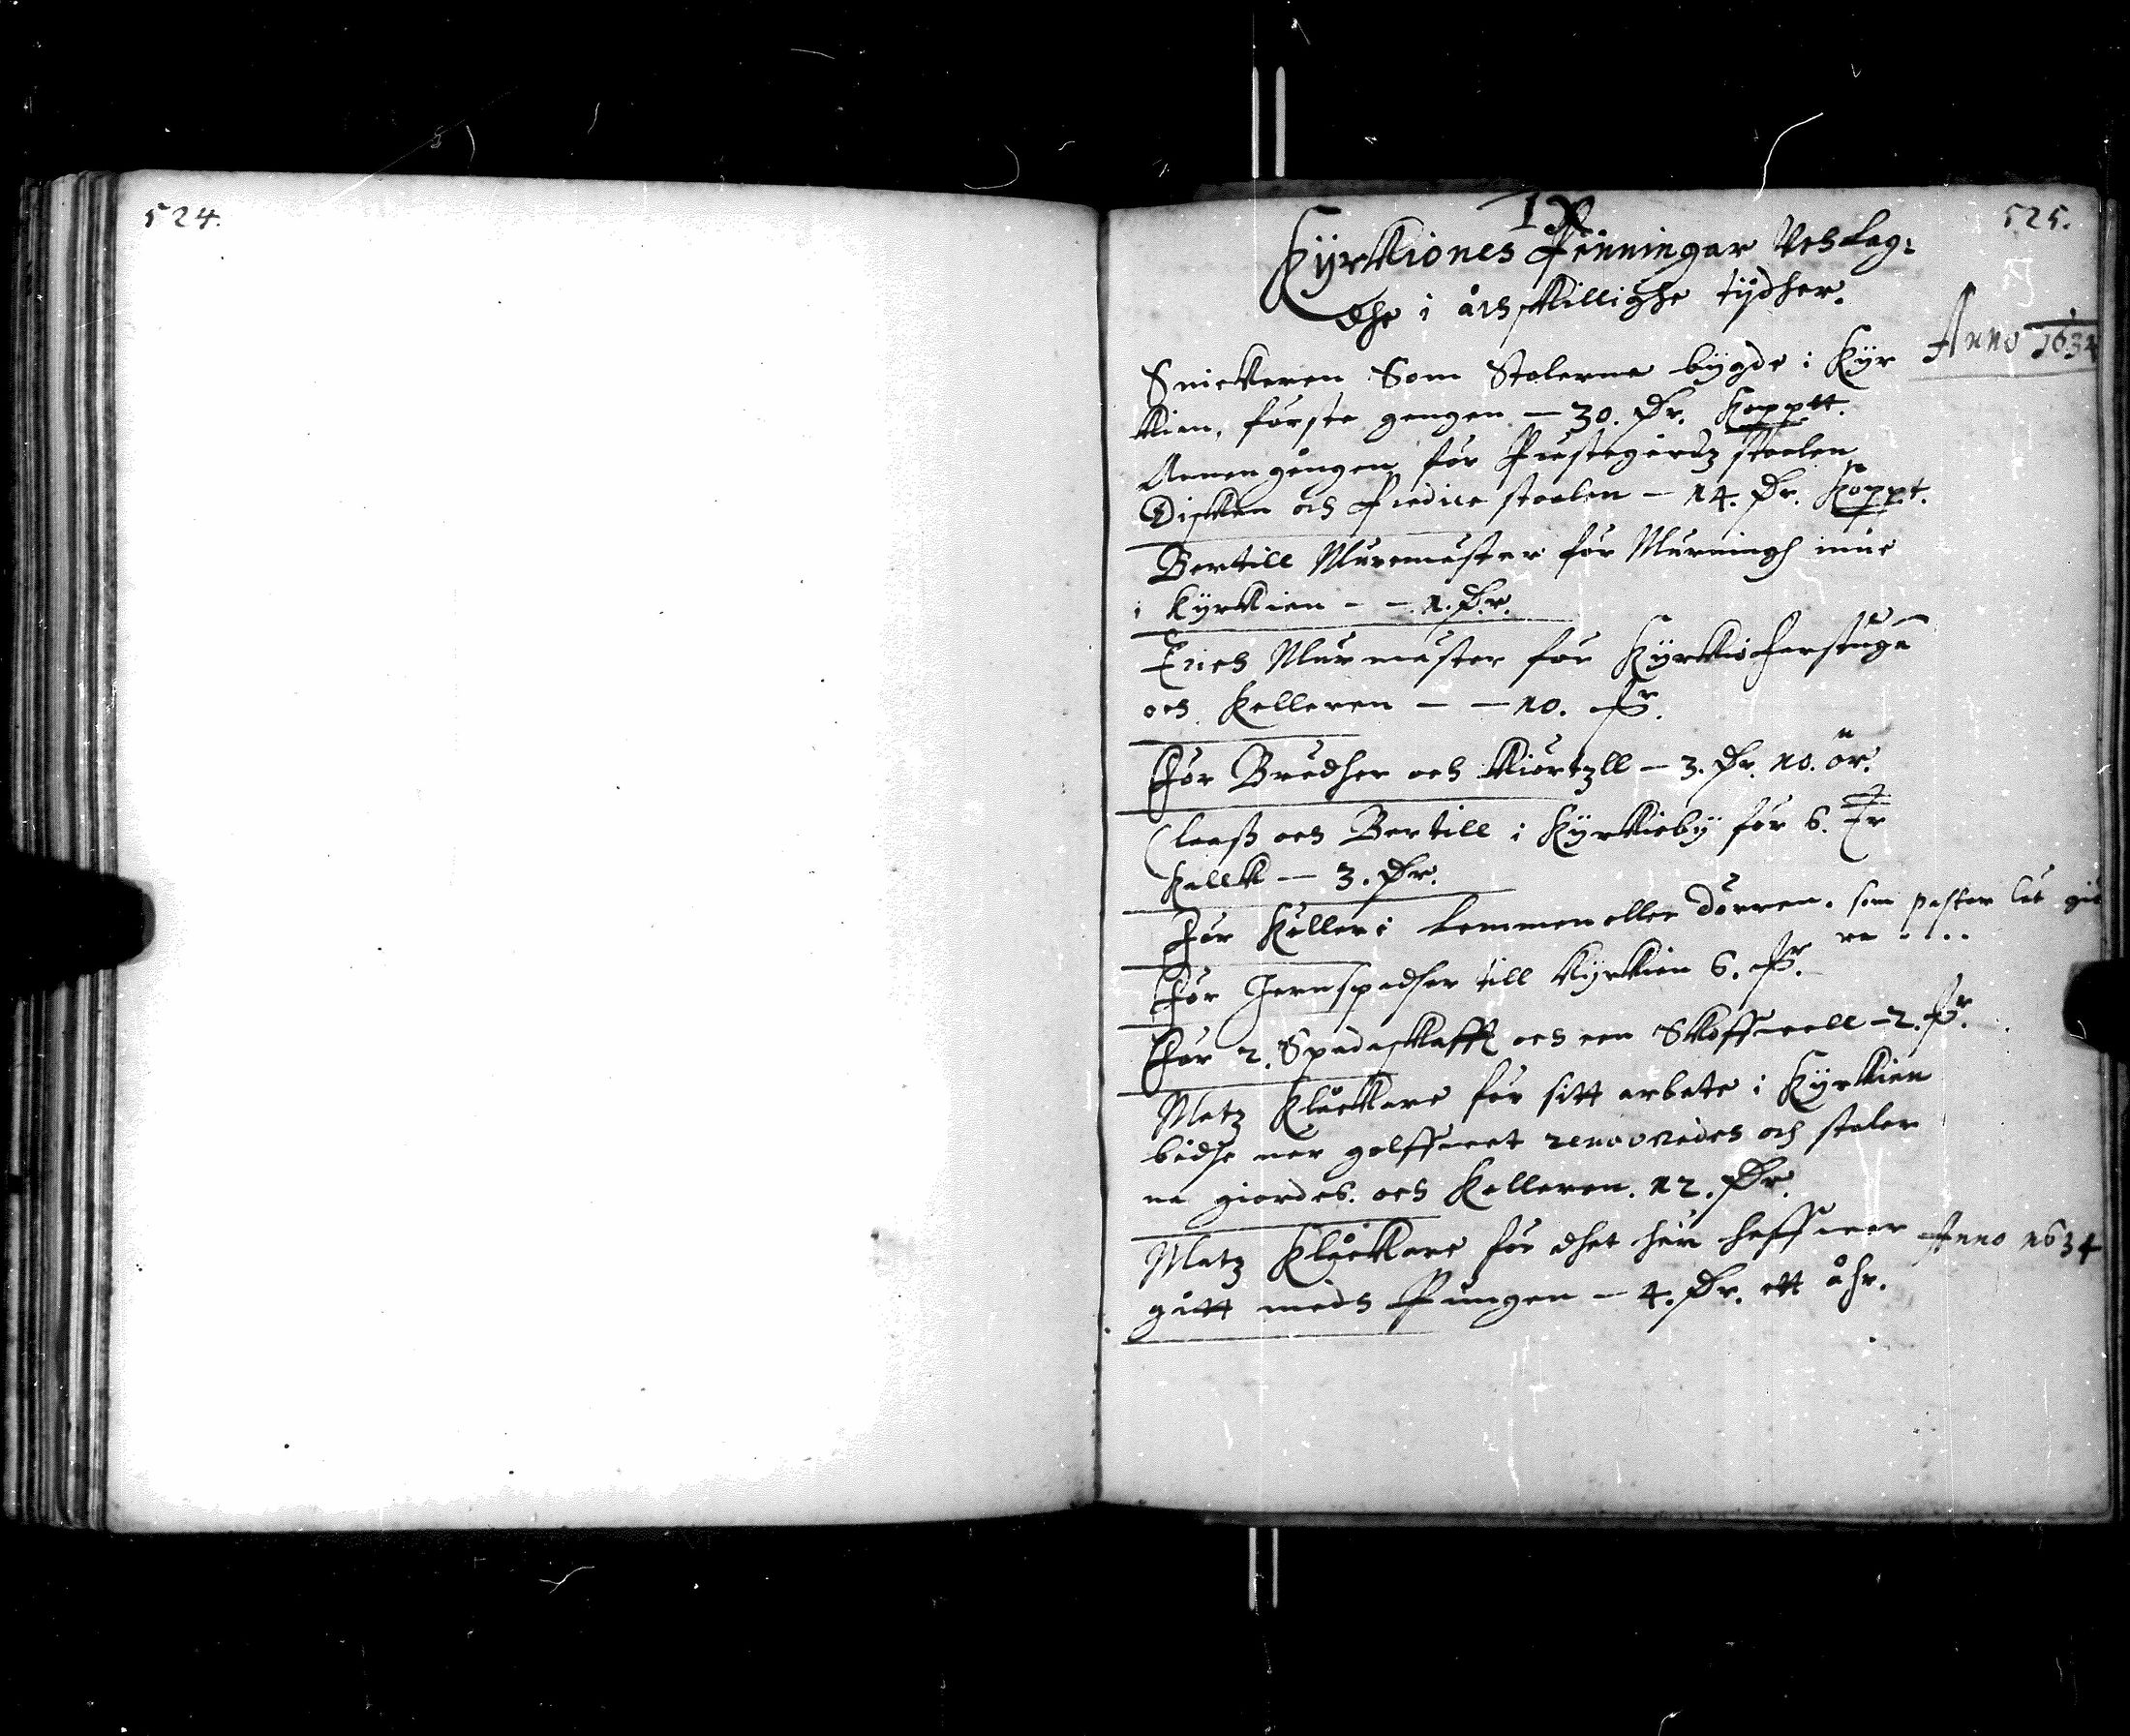 524.
525.
IX
Kyrkiones Penningar Vthlag:
dhe i åtskillighe tijdher.
Anno 1634
Snickeren Som Stolerna bygde i Kyr
kian, förste gengen — 30. Dr. Koppt.
Annen gången för Prestegårdz stoolen
Disken och Predike stoolen — 14. Dr. Koppt.
Bertill Muremester för Murningh inne
i Kyrkien — — 1. Dr.
Erich Murmester för Kyrkioherstuga
och Kelleren — — 10. Dr.
För Bredher och Kiortzll — 3. Dr. 10. ör.
Claaß och Bertill i Kyrkieby för 6. Tr
Kallk — 3. Dr.
För Keller Lemmen eller Dörren. som pastor let giö
ra ....
För Jernspadher till Kyrkien 6. Dr.
För 2. Spadaskafft och een Skoffuell — 2. Dr.
Matz Klåckare för sitt arbete i Kyrkien
bådhe ner golffuet renoveredes och stoler
na giordes. och Kelleren. 12. Dr.
Matz Klåckare för dhet han haffuer
Anno 1634
gått medh Pungen — 4. Dr. ett åhr.